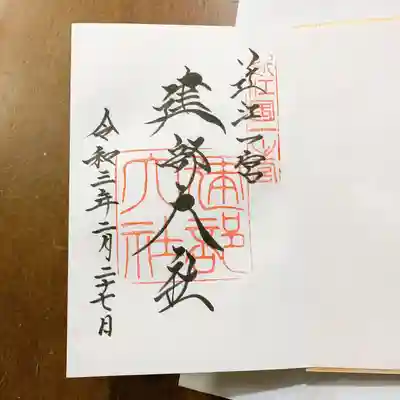 近江一宮
近江國一之宮
建部大社
建部大社
令和三年二月二十七日